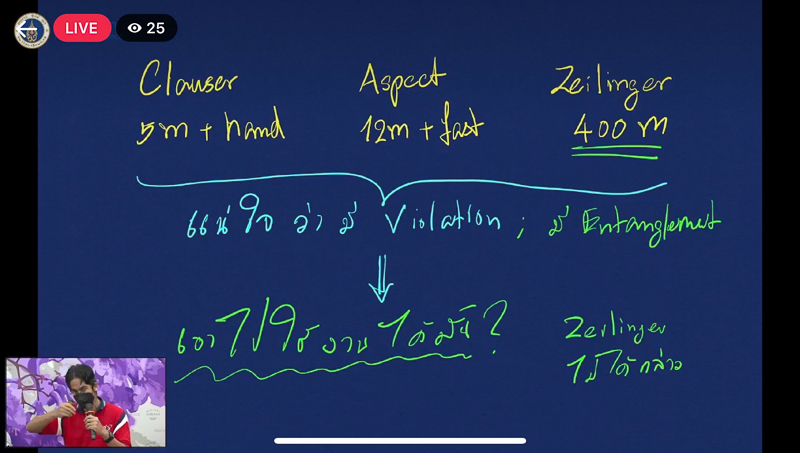 LIVE 25
Clauser Aspect Zeilinger
5m + hand 12m + fast 400 m
แน่ใจ ว่า มี Violation ; มี Entanglement
เอาไปใช้งานได้มั้ย ?
Zeilinger
ไม่ได้กล่าว